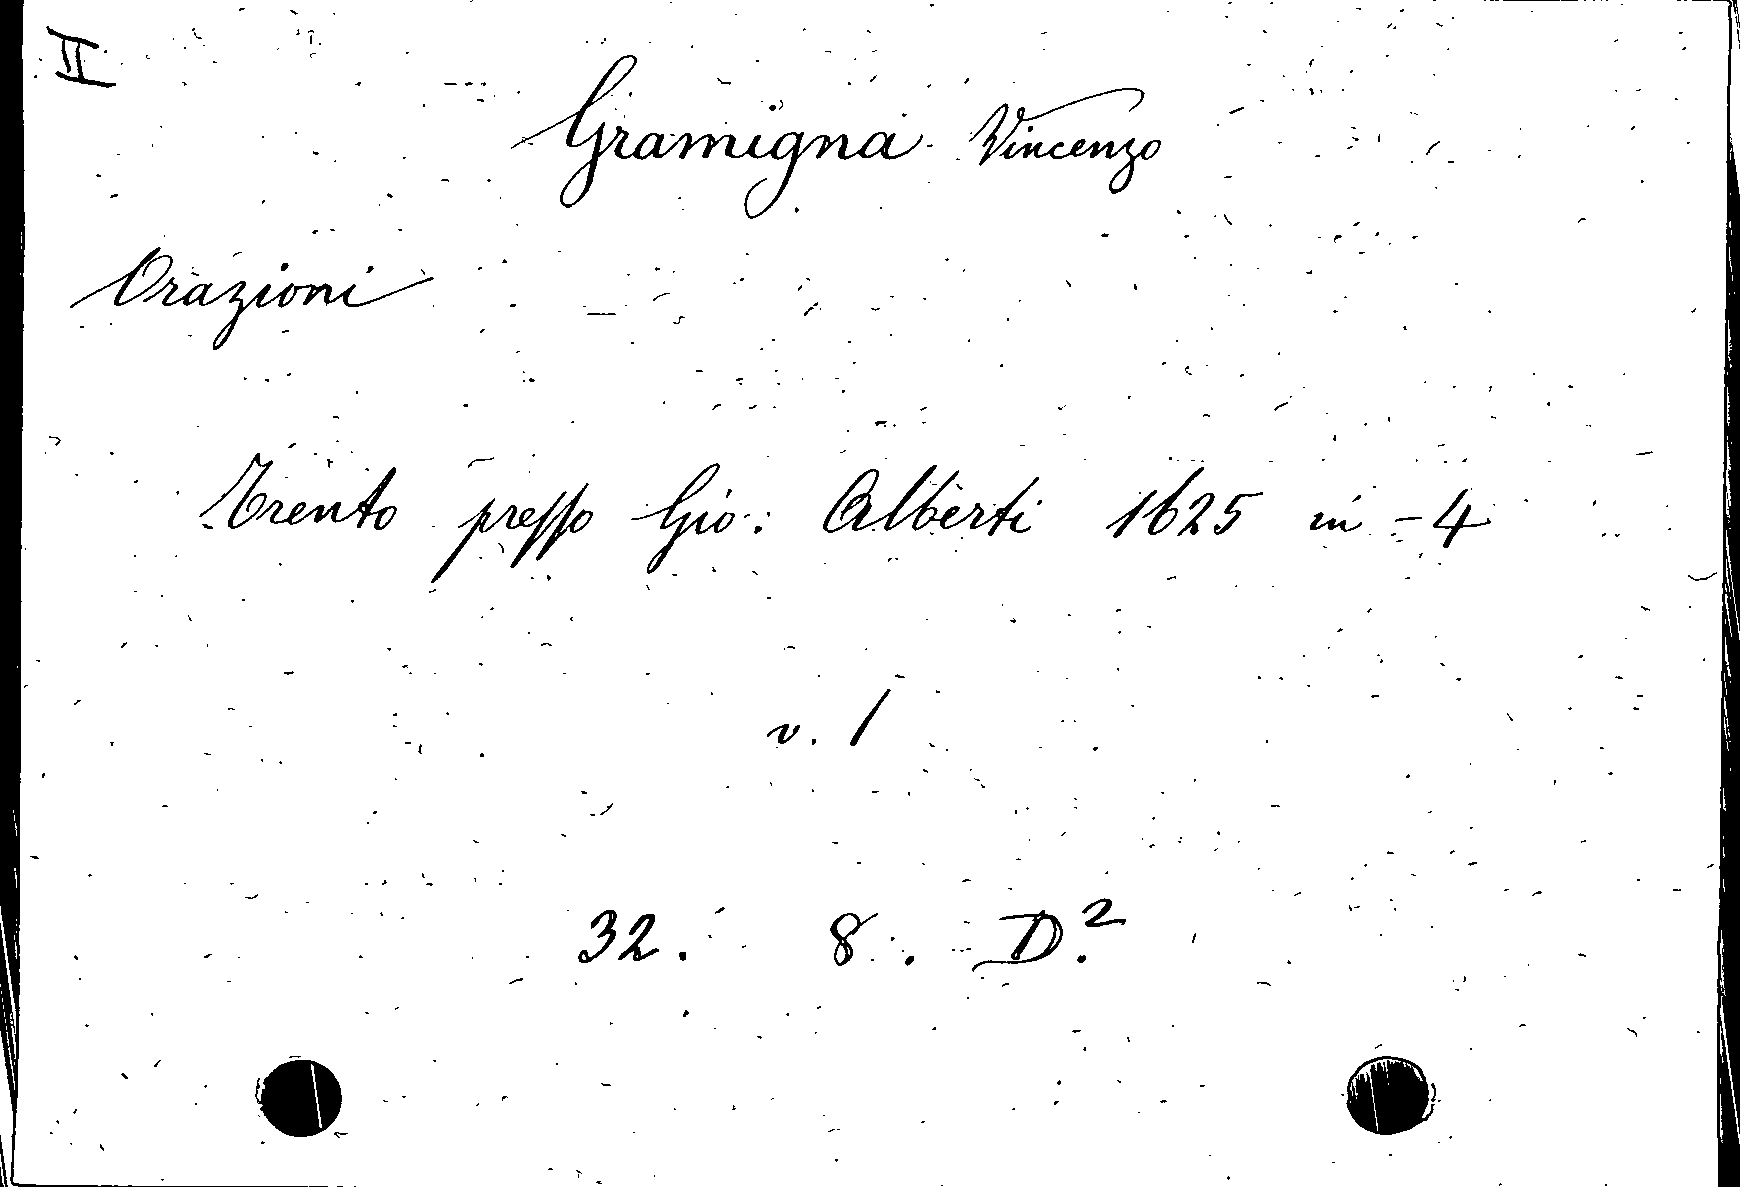 II
Gramigna Vincenzo
Orazioni
Trento presso Gio: Alberti 1625 in-4
v. 1
32. 8. D.²